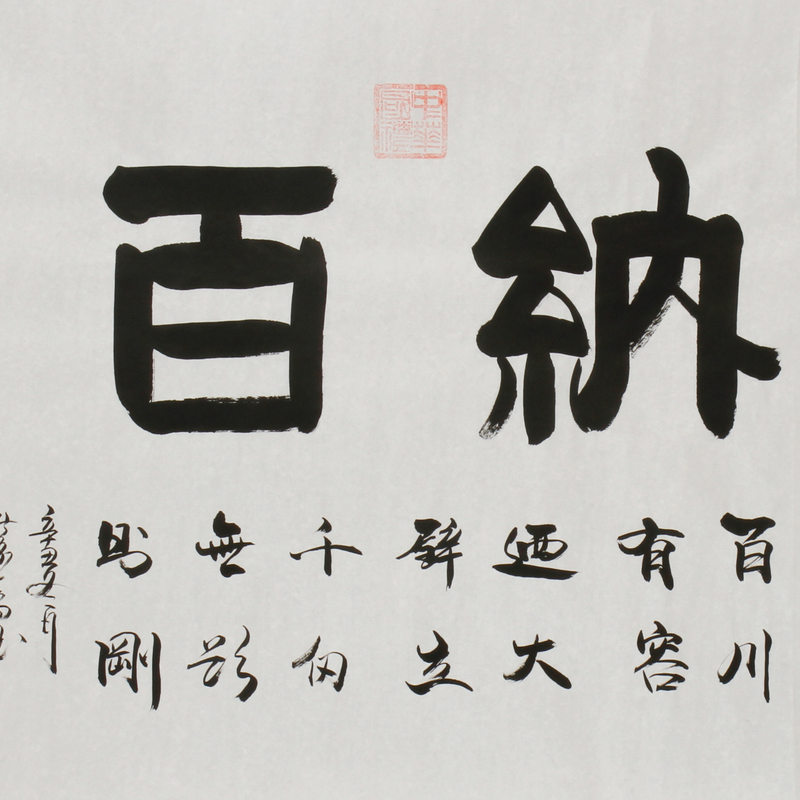 納百
百川
有容
迺大
壁立
千仞
無欲
則剛
辛丑夏月